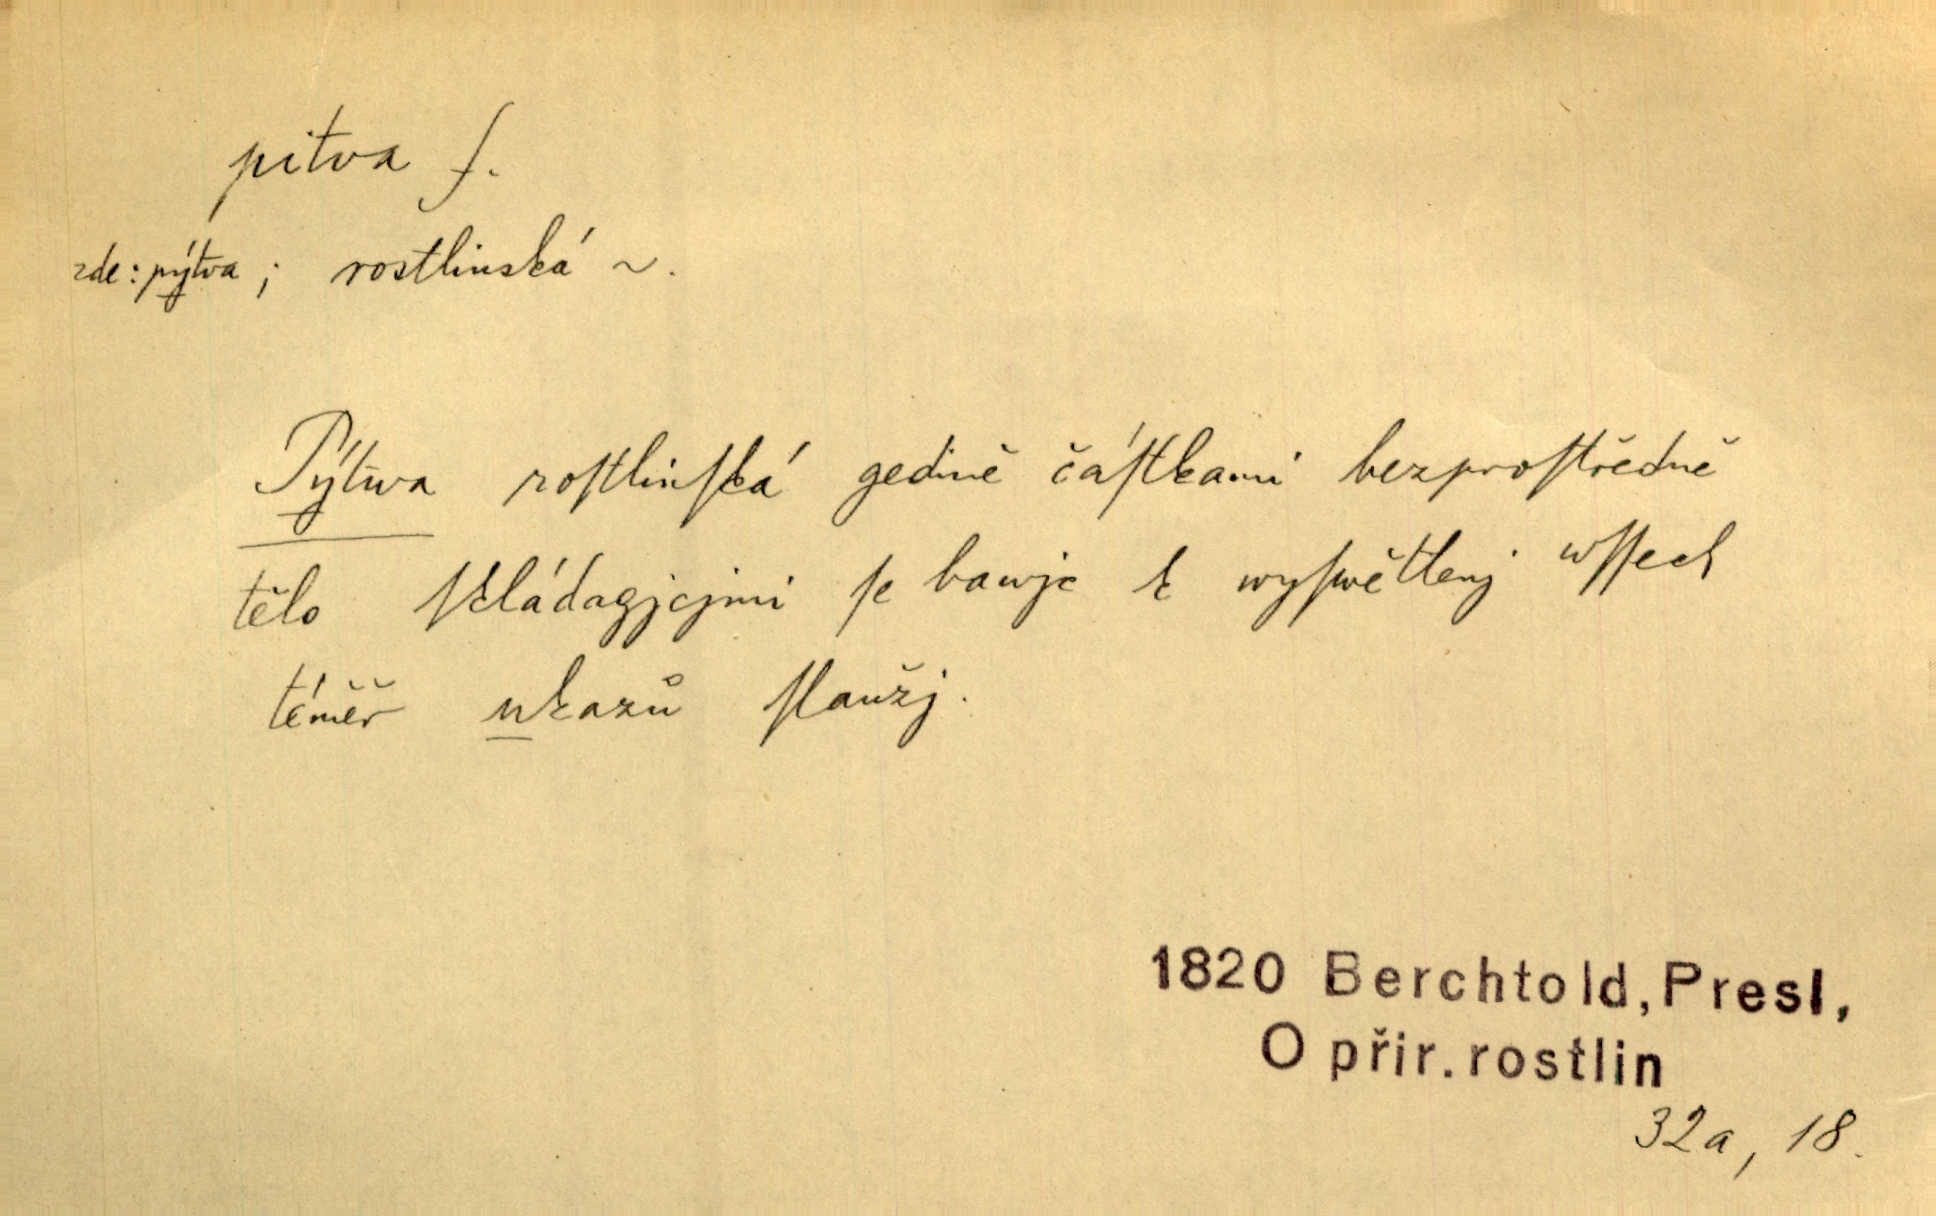 pitva f.
zde: pýtva; rostlinská ~.
Pýtwa roſtlinſká gedině čáſtkami bezproſtředně
tělo ſkládagjcjmi ſe bawjc k wyſwětlenj wſſech
téměř ukazů ſlaužj.
1820 Berchtold, Presl,
O přir. rostlin
32a, 18.